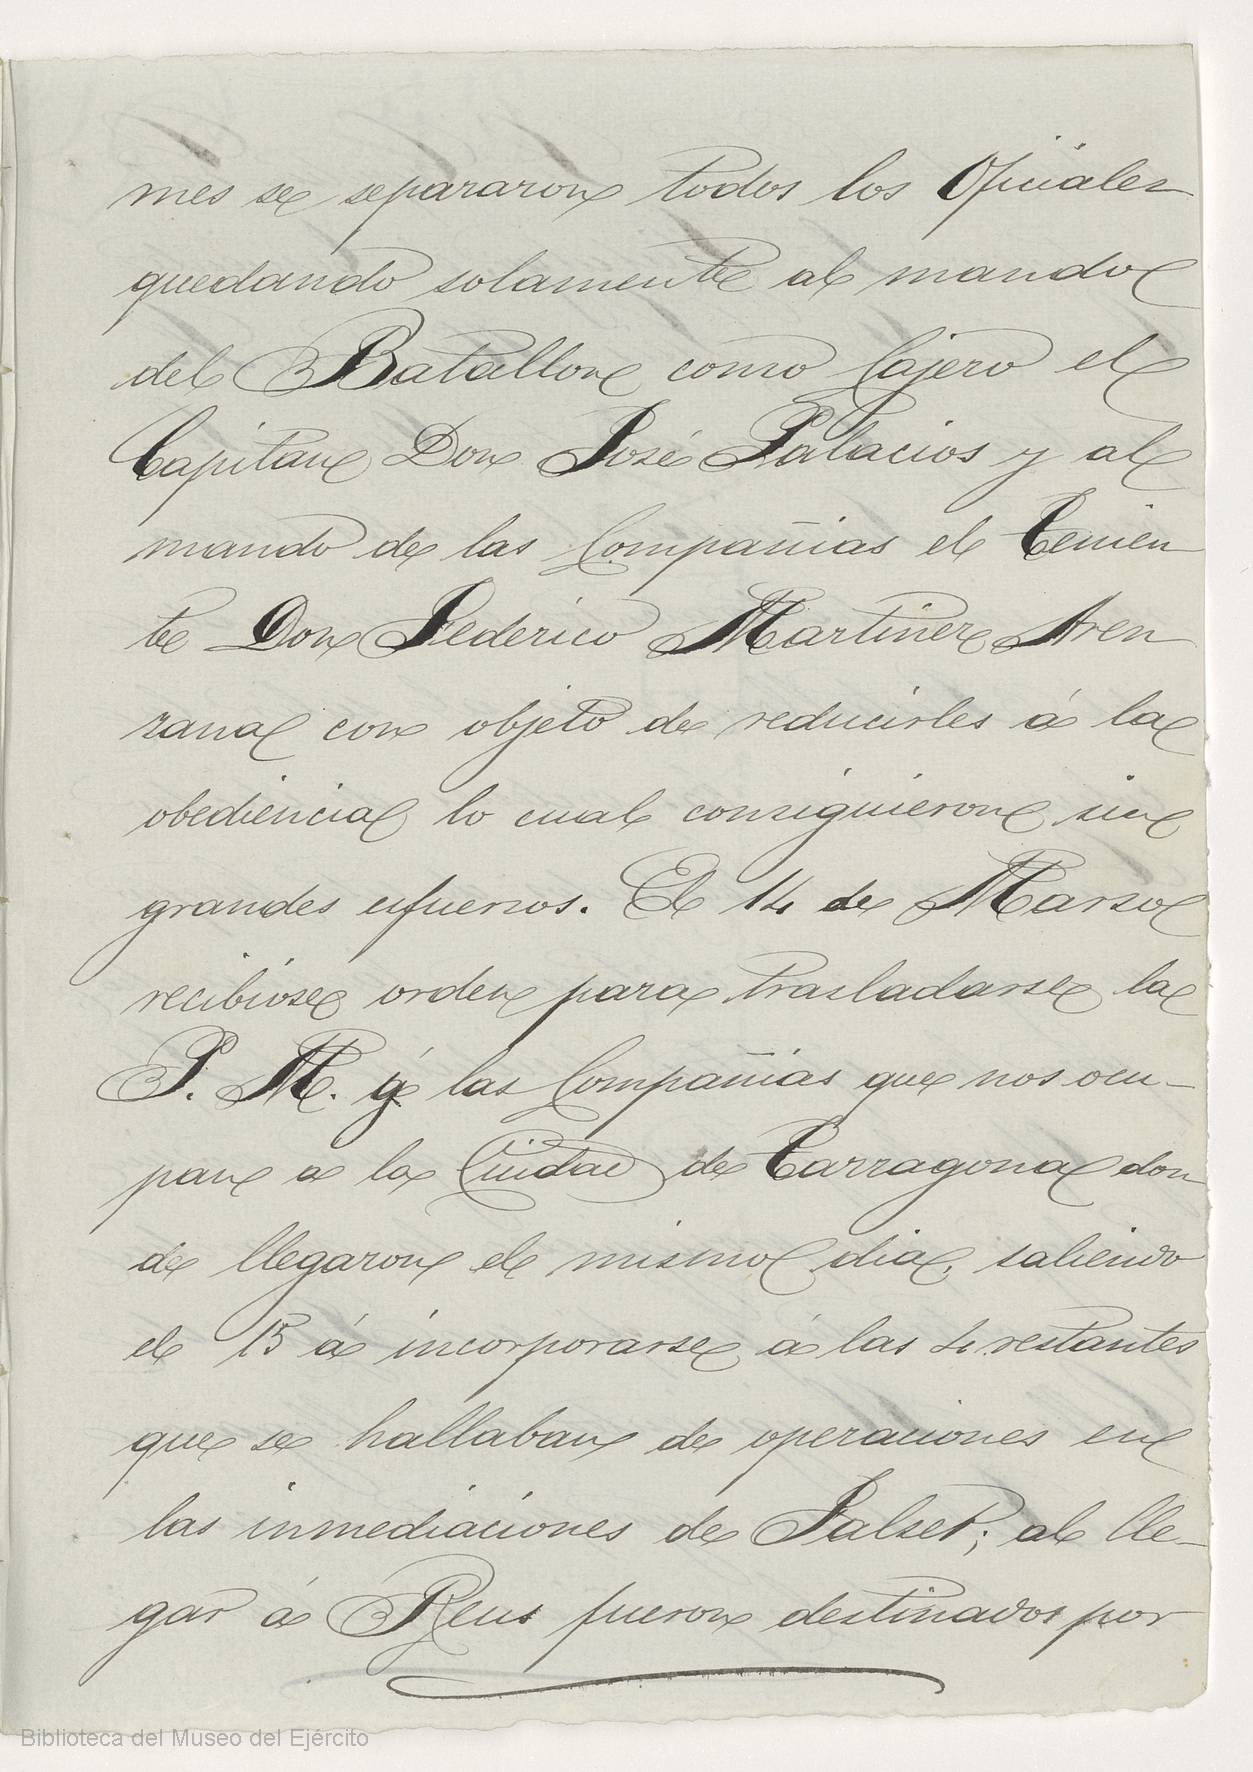 mes se separaron todos los Oficiales
quedando solamente al mando
del Batallon como Cajero el
Capitan Don José Palacios y al
mando de las Compañias el Tenien
te Don Federico Martinez Aren
zana con objeto de reducirles á la
obediencia lo cual consiguieron sin
grandes esfuerzos. El 14 de Marzo
recibiose orden para trasladarse la
P. M. y las Compañias que nos ocu-
pan a la Ciudad de Tarragona don
de llegaron el mismo dia, saliendo
el 15 á incorporarse á las 4 restantes
que se hallaban de operaciones en
las inmediaciones de Falset; al lle-
gar á Reus fueron destinados por
Biblioteca del Museo del Ejército